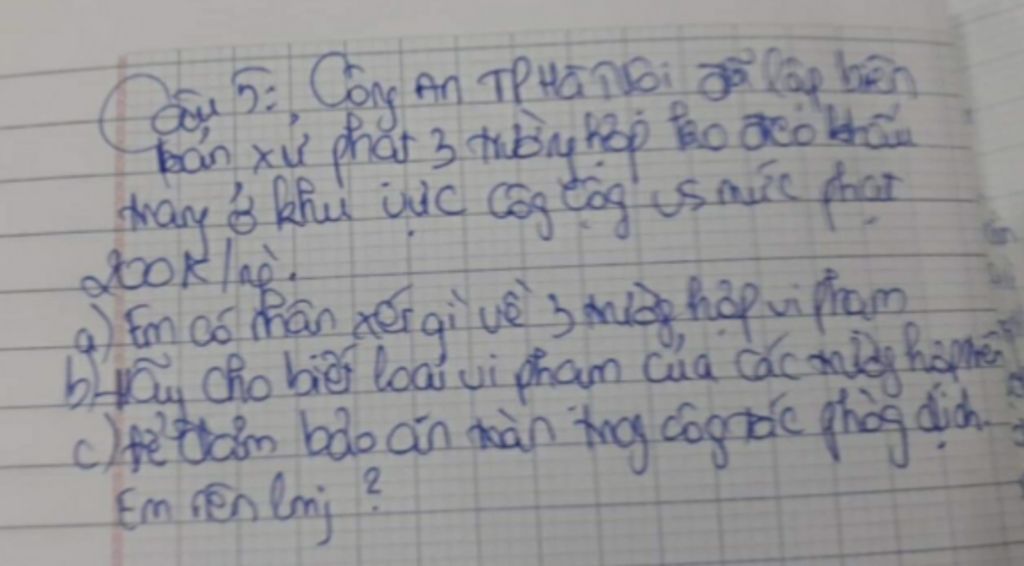 Câu 5: Công An TP Hà Nội đã lập biên
bản xử phạt 3 trường hợp ko đeo khẩu
trang ở khu vực côg cộg vs mức phạt
200K/ng`.
a) Em có nhận xét gì về 3 trườg hợp vi phạm
b) Hãy cho biết loại vi phạm của các trườg hợp trên
c) Để đảm bảo an toàn trog côg tác phòg dịch.
Em nên lmj ?